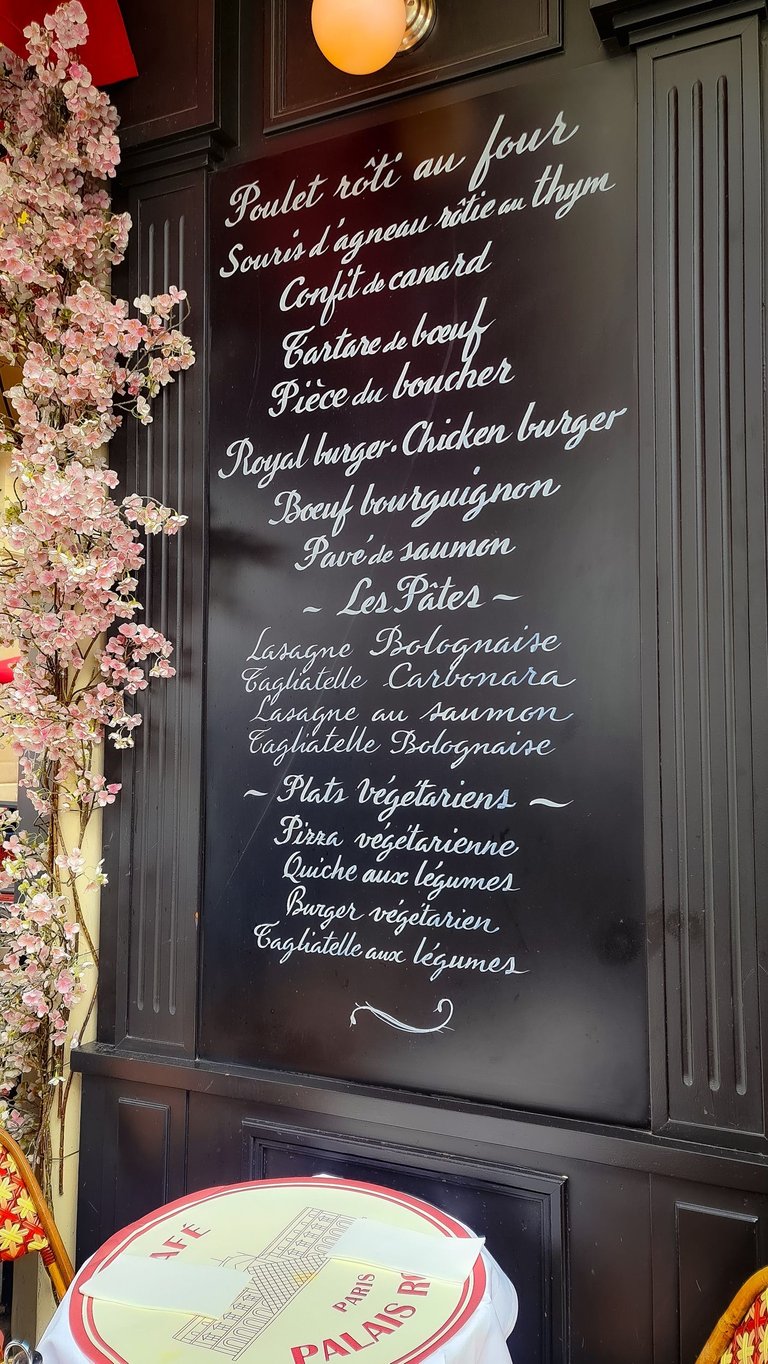 Poulet rôti au four
Souris d'agneau rôtie au thym
Confit de canard
Tartare de bœuf
Pièce du boucher
Royal burger. Chicken burger
Bœuf bourguignon
Pavé de saumon
~ Les Pâtes ~
Lasagne Bolognaise
Tagliatelle Carbonara
Lasagne au saumon
Tagliatelle Bolognaise
~ Plats végétariens ~
Pizza végétarienne
Quiche aux légumes
Burger végétarien
Tagliatelle aux légumes
PARIS
PALAIS